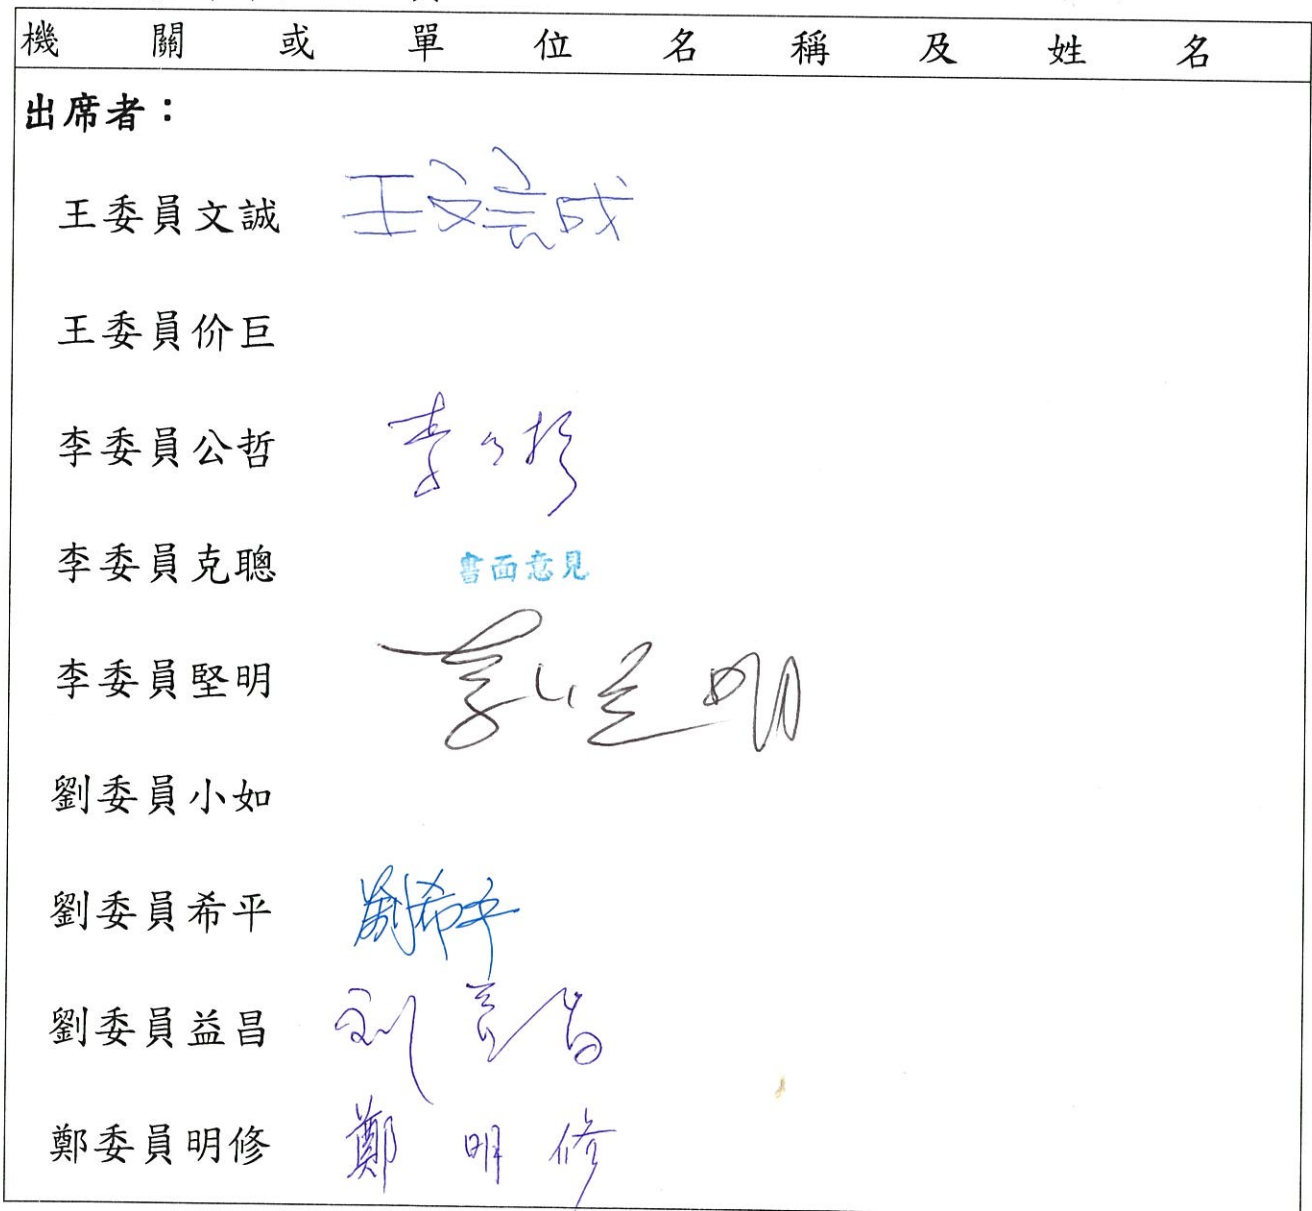 機關或單位名稱及姓名
出席者：
王委員文誠 王文誠
王委員价巨
李委員公哲 李公哲
李委員克聰 書面意見
李委員堅明 李堅明
劉委員小如
劉委員希平 劉希平
劉委員益昌 劉益昌
鄭委員明修 鄭明修